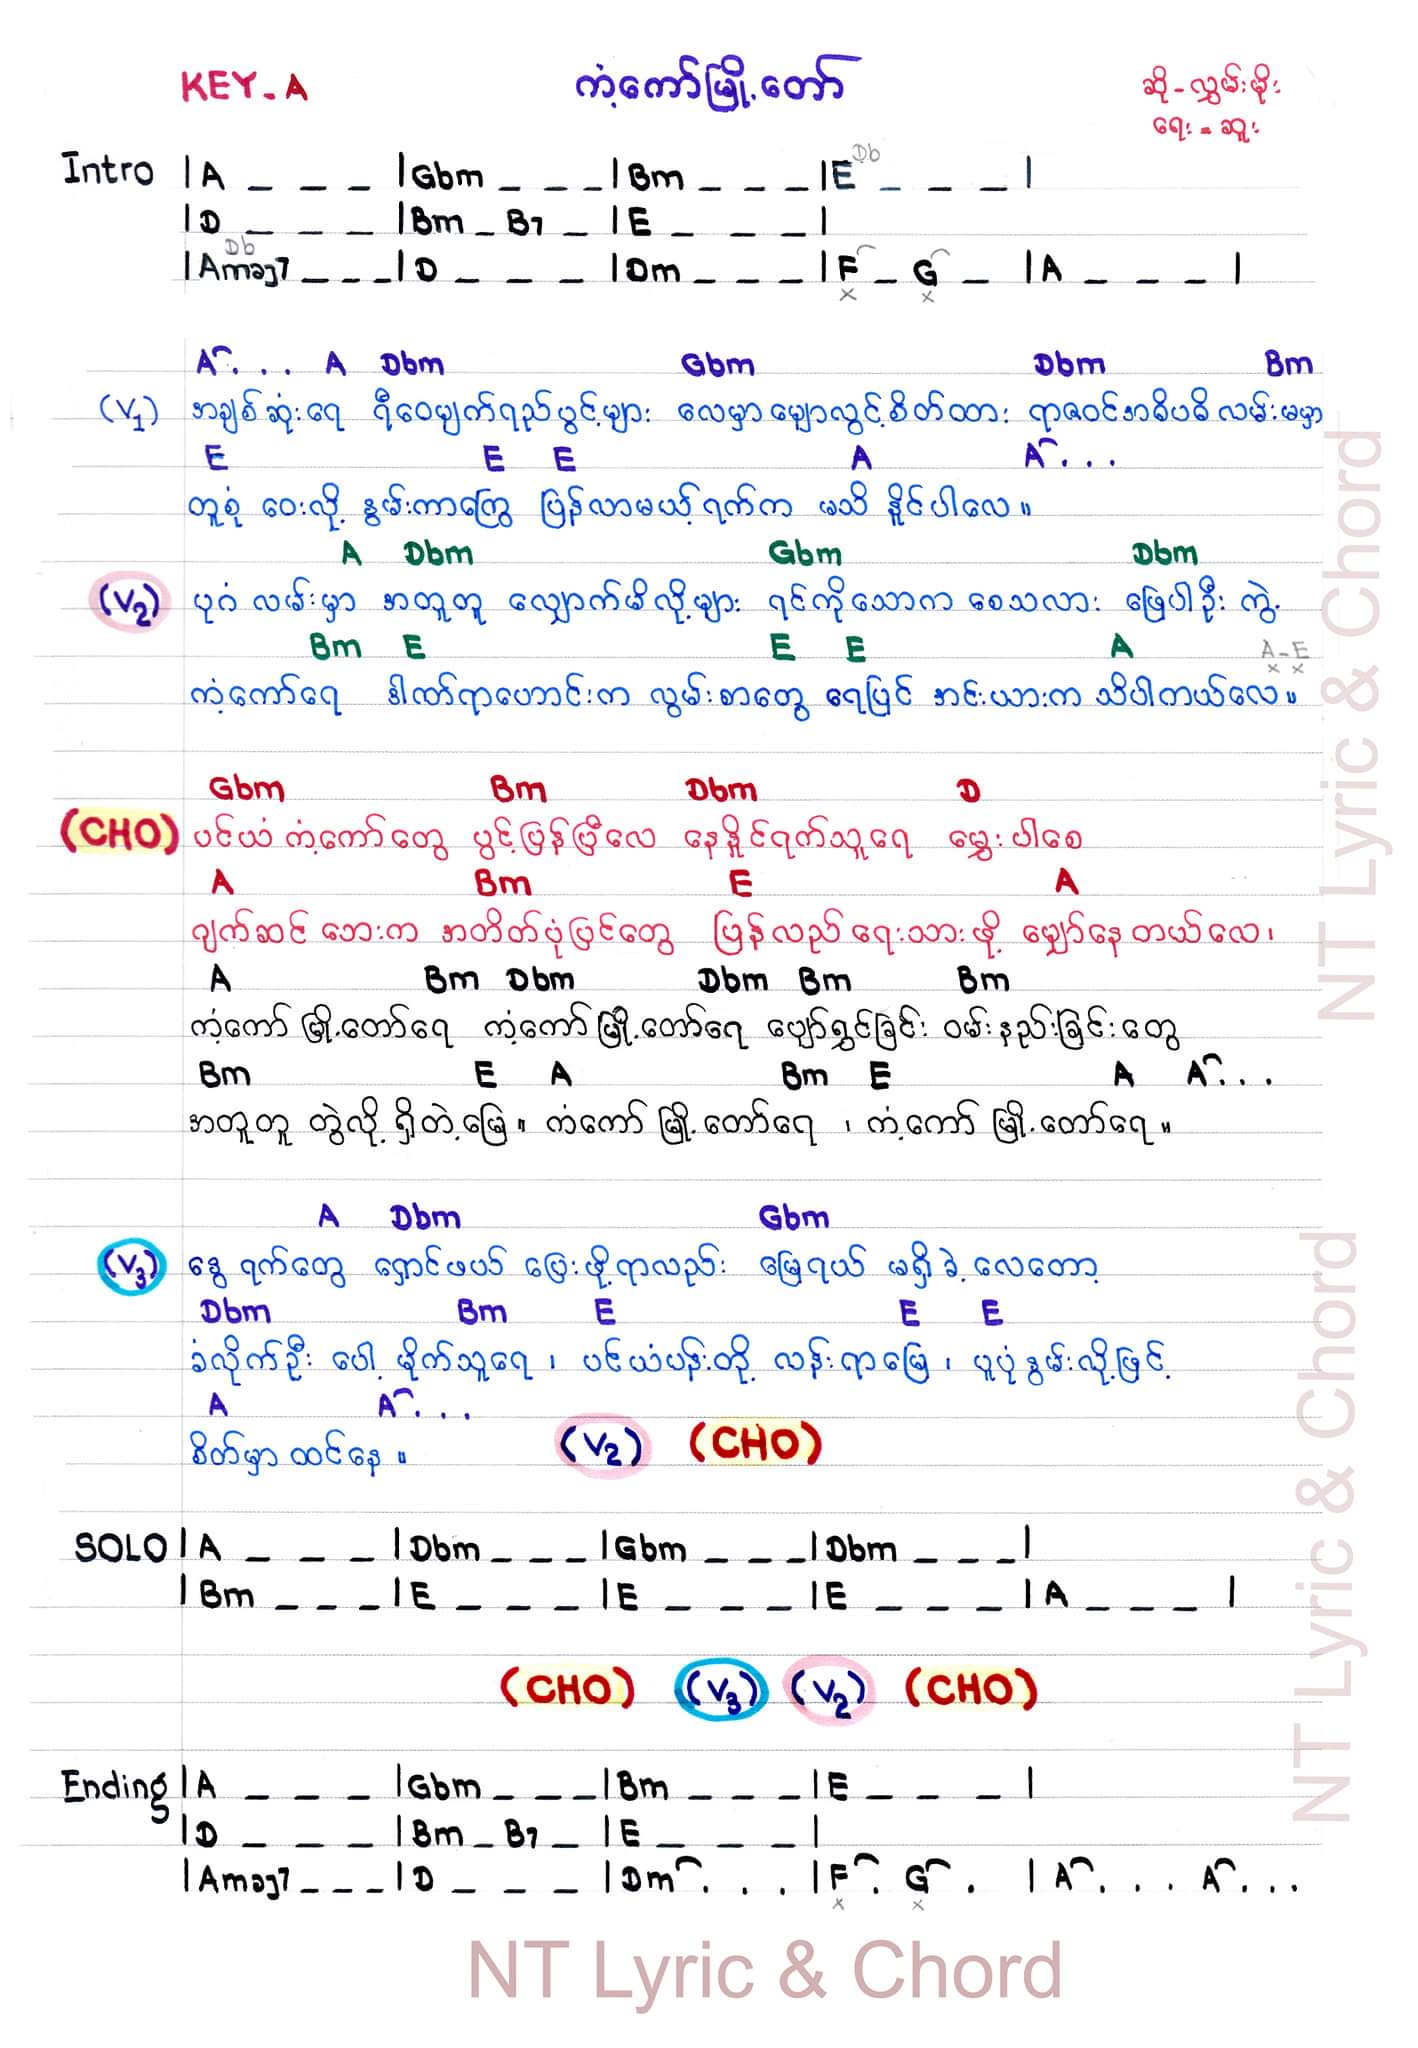 KEY - A
ကံ့ကော်မြို့တော်
ဆို - လွှမ်းမိုး
ရေး = ဆူး
Intro |A _ _ _ |Gbm _ _ _ |Bm _ _ _ |E Db _ _ _ |
|D _ _ _ |Bm _ B7 _ |E _ _ _ |
|Amaj7 Db _ _ _ |D _ _ _ |Dm _ _ _ |F _ G _ |A _ _ _ |
x x
A . . . A Dbm Gbm Dbm Bm
(V1) အချစ်ဆုံးရေ ရီဝေမျက်ရည်ပွင့်များ လေမှာမျောလွင့်စိတ်ထား ရာဇဝင်အဓိပဓိလမ်းမမှာ
E E E A A . . .
တူစုံ ဝေးလို့ နွမ်းကာကြွေ ပြန်လာမယ့်ရက်က မသိ နိူင်ပါလေ။
A Dbm Gbm Dbm
(V2) ပုဂံ လမ်းမှာ အတူတူ လျှောက်မိလို့များ ရင်ကိုသောက စေသလား ဖြေပါဦး ကွဲ့
Bm E E E A A - E
x x
ကံ့ကော်ရေ ဒါဏ်ရာဟောင်းက လွမ်းစာတွေ ရေပြင် အင်းယားက သိပါတယ်လေ။
Gbm Bm Dbm D
(CHO) ပင်ယံ ကံ့ကော်တွေ ပွင့်ပြန်ပြီလေ နေနိူင်ရက်သူရေ မွှေးပါစေ
A Bm E A
ဂျက်ဆင် ဘေးက အတိတ်ပုံပြင်တွေ ပြန်လည်ရေးသားဖို့ မျှော်နေတယ်လေ၊
A Bm Dbm Dbm Bm Bm
ကံ့ကော် မြို့တော်ရေ ကံ့ကော် မြို့တော်ရေ ပျော်ရွှင်ခြင်း ဝမ်းနည်းခြင်းတွေ
Bm E A Bm E A A . . .
အတူတူ တွဲလို့ ရှိတဲ့မြေ။ ကံကော် မြို့တော်ရေ ၊ ကံ့ကော် မြို့တော်ရေ။
A Dbm Gbm
(V3) နွေ ရက်တွေ ရှောင်ဖယ် ပြေးဖို့ရာလည်း မြေရယ် မရှိခဲ့လေတော့
Dbm Bm E E E
ခံလိုက်ဦး ပေါ့ မိုက်သူရေ ၊ ပင်ယံပန်းတို့ လန်းရာမြေ ၊ ပူပုံနွမ်းလို့ဖြင့်
A A . . .
စိတ်မှာ ထင်နေ။ (V2) (CHO)
SOLO |A _ _ _ |Dbm _ _ _ |Gbm _ _ _ |Dbm _ _ _ |
|Bm _ _ _ |E _ _ _ |E _ _ _ |E _ _ _ |A _ _ _ |
(CHO) (V3) (V2) (CHO)
Ending |A _ _ _ |Gbm _ _ _ |Bm _ _ _ |E _ _ _ |
|D _ _ _ |Bm _ B7 _ |E _ _ _ |
|Amaj7 _ _ _ |D _ _ _ |Dm . . . |F . G . |A . . . A . . .
x x
NT Lyric & Chord
NT Lyric & Chord
NT Lyric & Chord